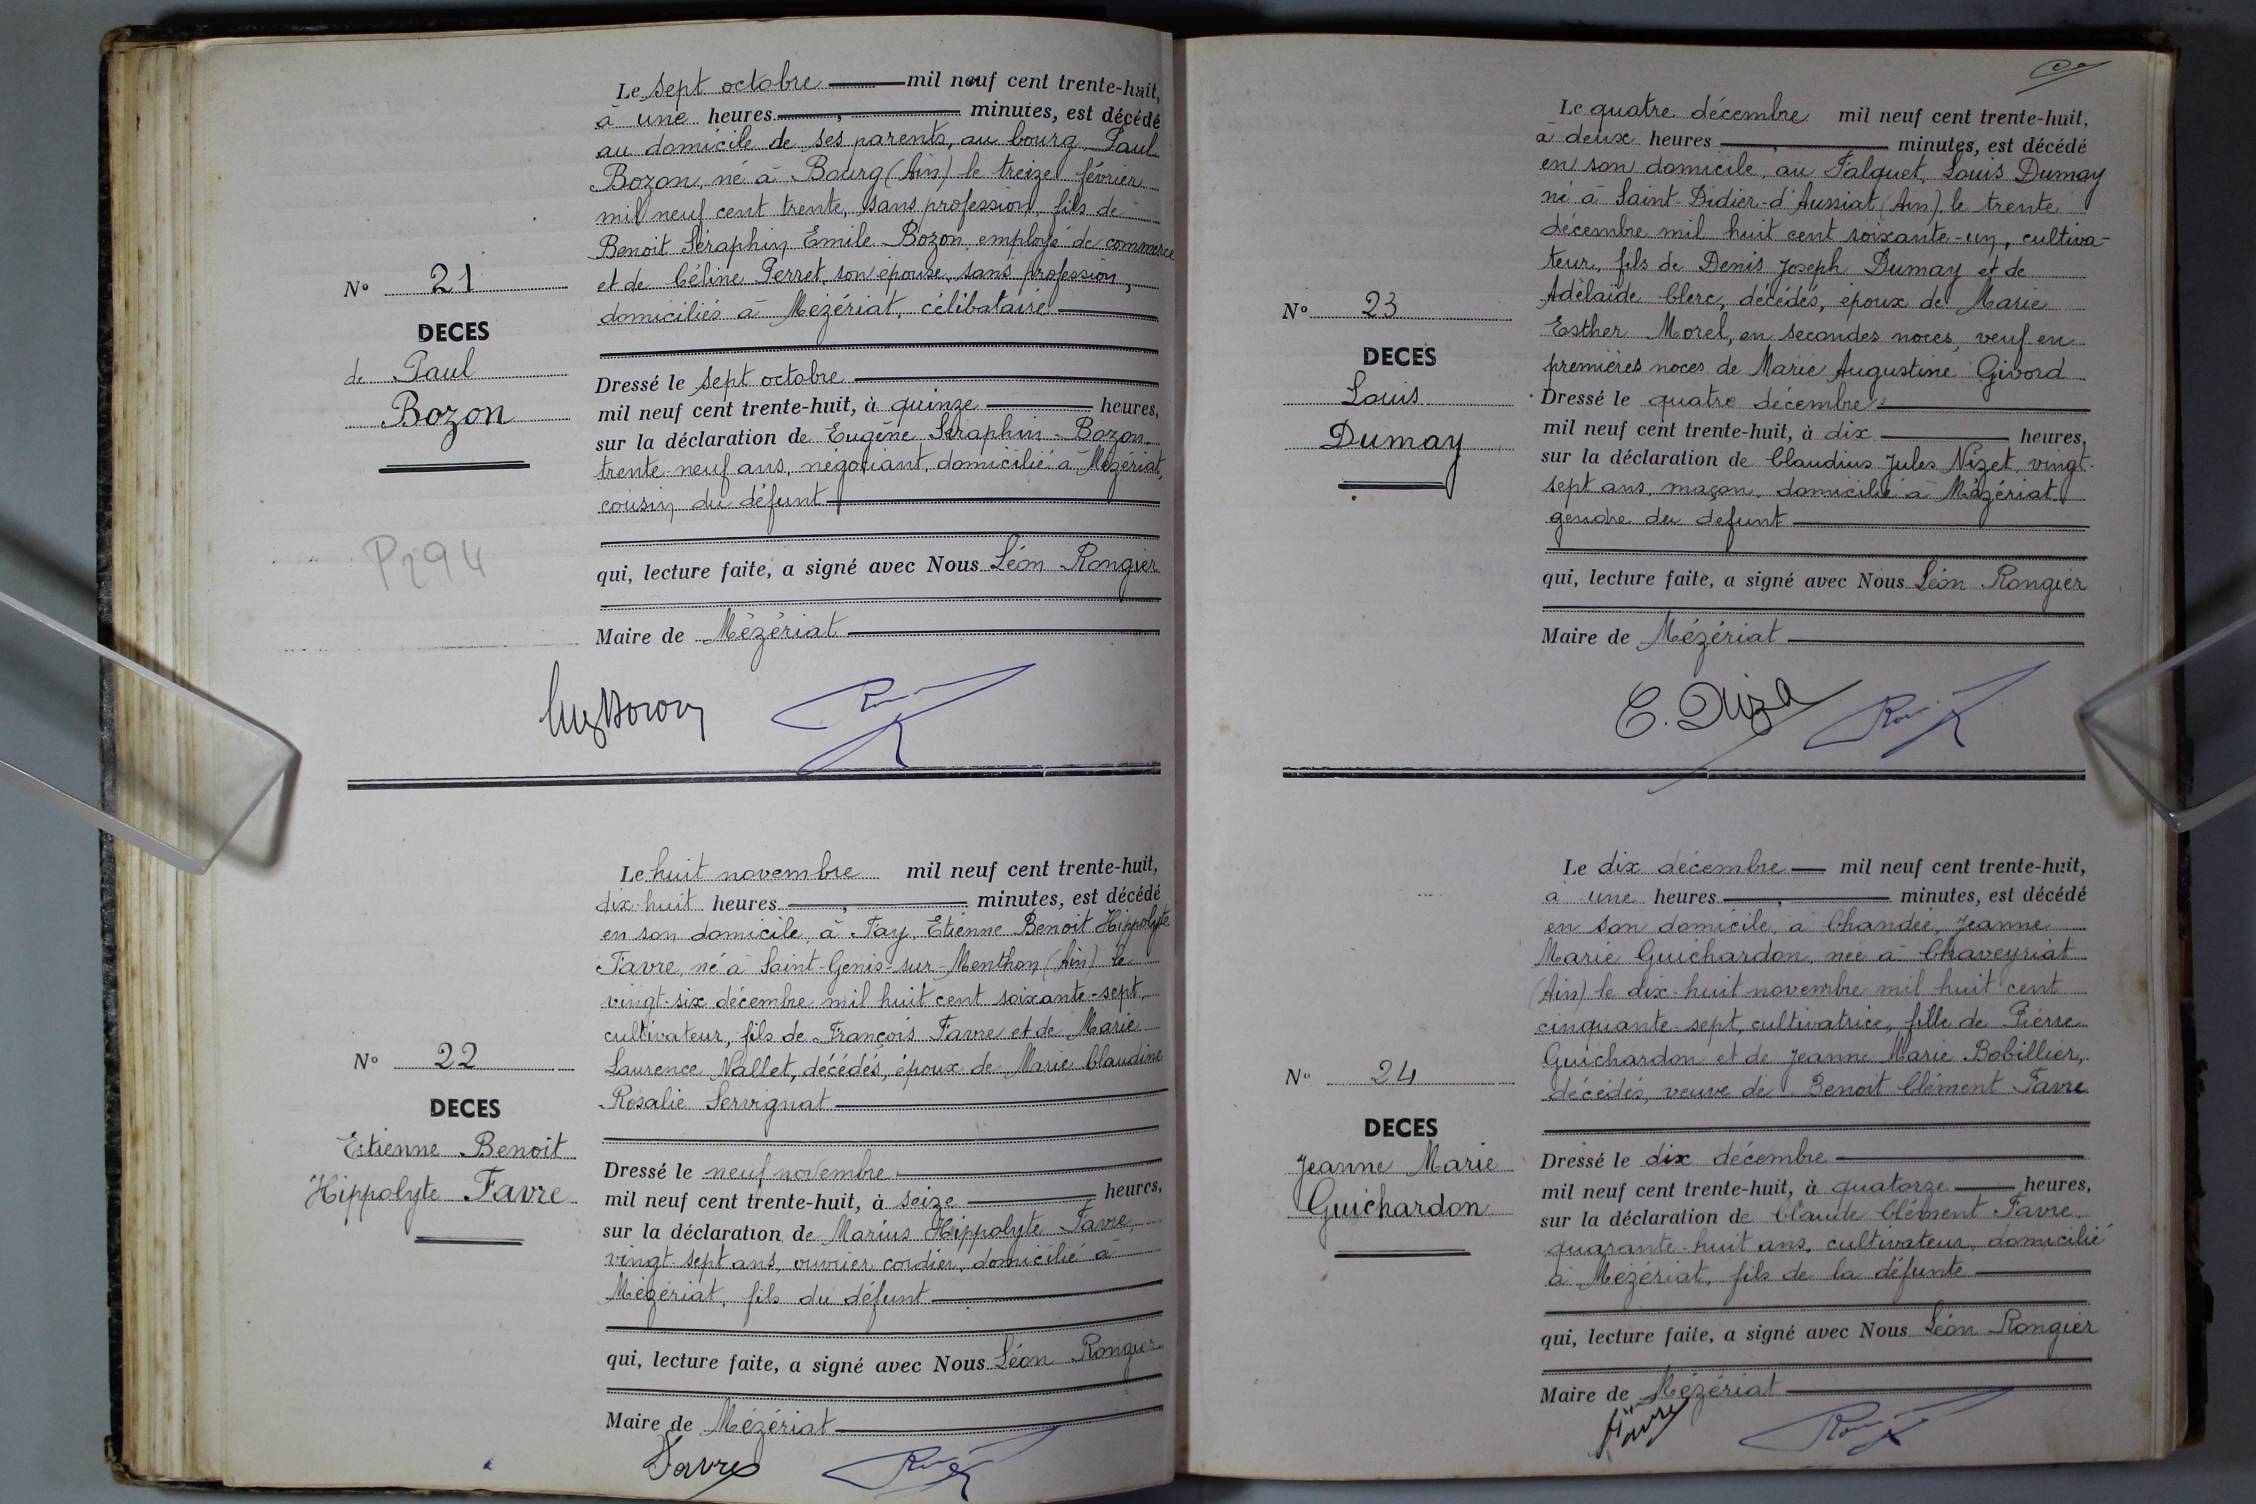 Le sept octobre mil neuf cent trente-huit,
à une heures , minutes, est décédé
au domicile de ses parents, au bourg, Paul
Bozon, né à Bourg (Ain) le treize février
mil neuf cent trente, sans profession, fils de
Benoit Séraphin Emile Bozon employé de commerce
et de Céline Perret, son épouse, sans profession,
domiciliés à Mézériat, célibataire
N° 21
DECES
de Paul
Bozon
Dressé le sept octobre
mil neuf cent trente-huit, à quinze heures,
sur la déclaration de Eugène Séraphin Bozon
trente-neuf ans, négociant, domicilié à Mézériat,
cousin du défunt
P294
qui, lecture faite, a signé avec Nous Léon Rongier
Maire de Mézériat
Le huit novembre mil neuf cent trente-huit,
dix-huit heures , minutes, est décédé
en son domicile, à Fay, Etienne Benoit Hippolyte
Favre, né à Saint-Genis-sur-Menthon (Ain) le
vingt-six décembre mil huit cent soixante-sept,
cultivateur, fils de François Favre et de Marie
Laurence Nallet, décédés, époux de Marie Claudine
Rosalie Servignat
N° 22
DECES
Etienne Benoit
Hippolyte Favre
Dressé le neuf novembre
mil neuf cent trente-huit, à seize heures,
sur la déclaration de Marius Hippolyte Favre,
vingt-sept ans, ouvrier cordier, domicilié à
Mézériat, fils du défunt
qui, lecture faite, a signé avec Nous Léon Rongier
Maire de Mézériat
Favre
Le quatre décembre mil neuf cent trente-huit,
à deux heures , minutes, est décédé
en son domicile, au Falquet, Louis Dumay
né à Saint-Didier-d'Aussiat (Ain) le trente
décembre mil huit cent soixante-un, cultiva-
teur, fils de Denis Joseph Dumay et de
Adélaïde Clerc, décédés, époux de Marie
Esther Morel, en secondes noces, veuf en
premières noces de Marie Augustine Givord
N° 23
DECES
Louis
Dumay
Dressé le quatre décembre
mil neuf cent trente-huit, à dix heures,
sur la déclaration de Claudius Jules Nizet, vingt-
sept ans, maçon, domicilié à Mézériat
gendre du defunt
qui, lecture faite, a signé avec Nous Léon Rongier
Maire de Mézériat
Le dix décembre mil neuf cent trente-huit,
à une heures , minutes, est décédé
en son domicile, à Chandée, Jeanne
Marie Guichardon, née à Chaveyriat
(Ain) le dix-huit novembre mil huit cent
cinquante-sept, cultivatrice, fille de Pierre
Guichardon et de Jeanne Marie Bobillier,
décédés, veuve de Benoit Clément Favre
N° 24
DECES
Jeanne Marie
Guichardon
Dressé le dix décembre
mil neuf cent trente-huit, à quatorze heures,
sur la déclaration de Claude Clément Favre,
quarante-huit ans, cultivateur, domicilié
à Mézériat, fils de la défunte
qui, lecture faite, a signé avec Nous Léon Rongier
Maire de Mézériat
Favre